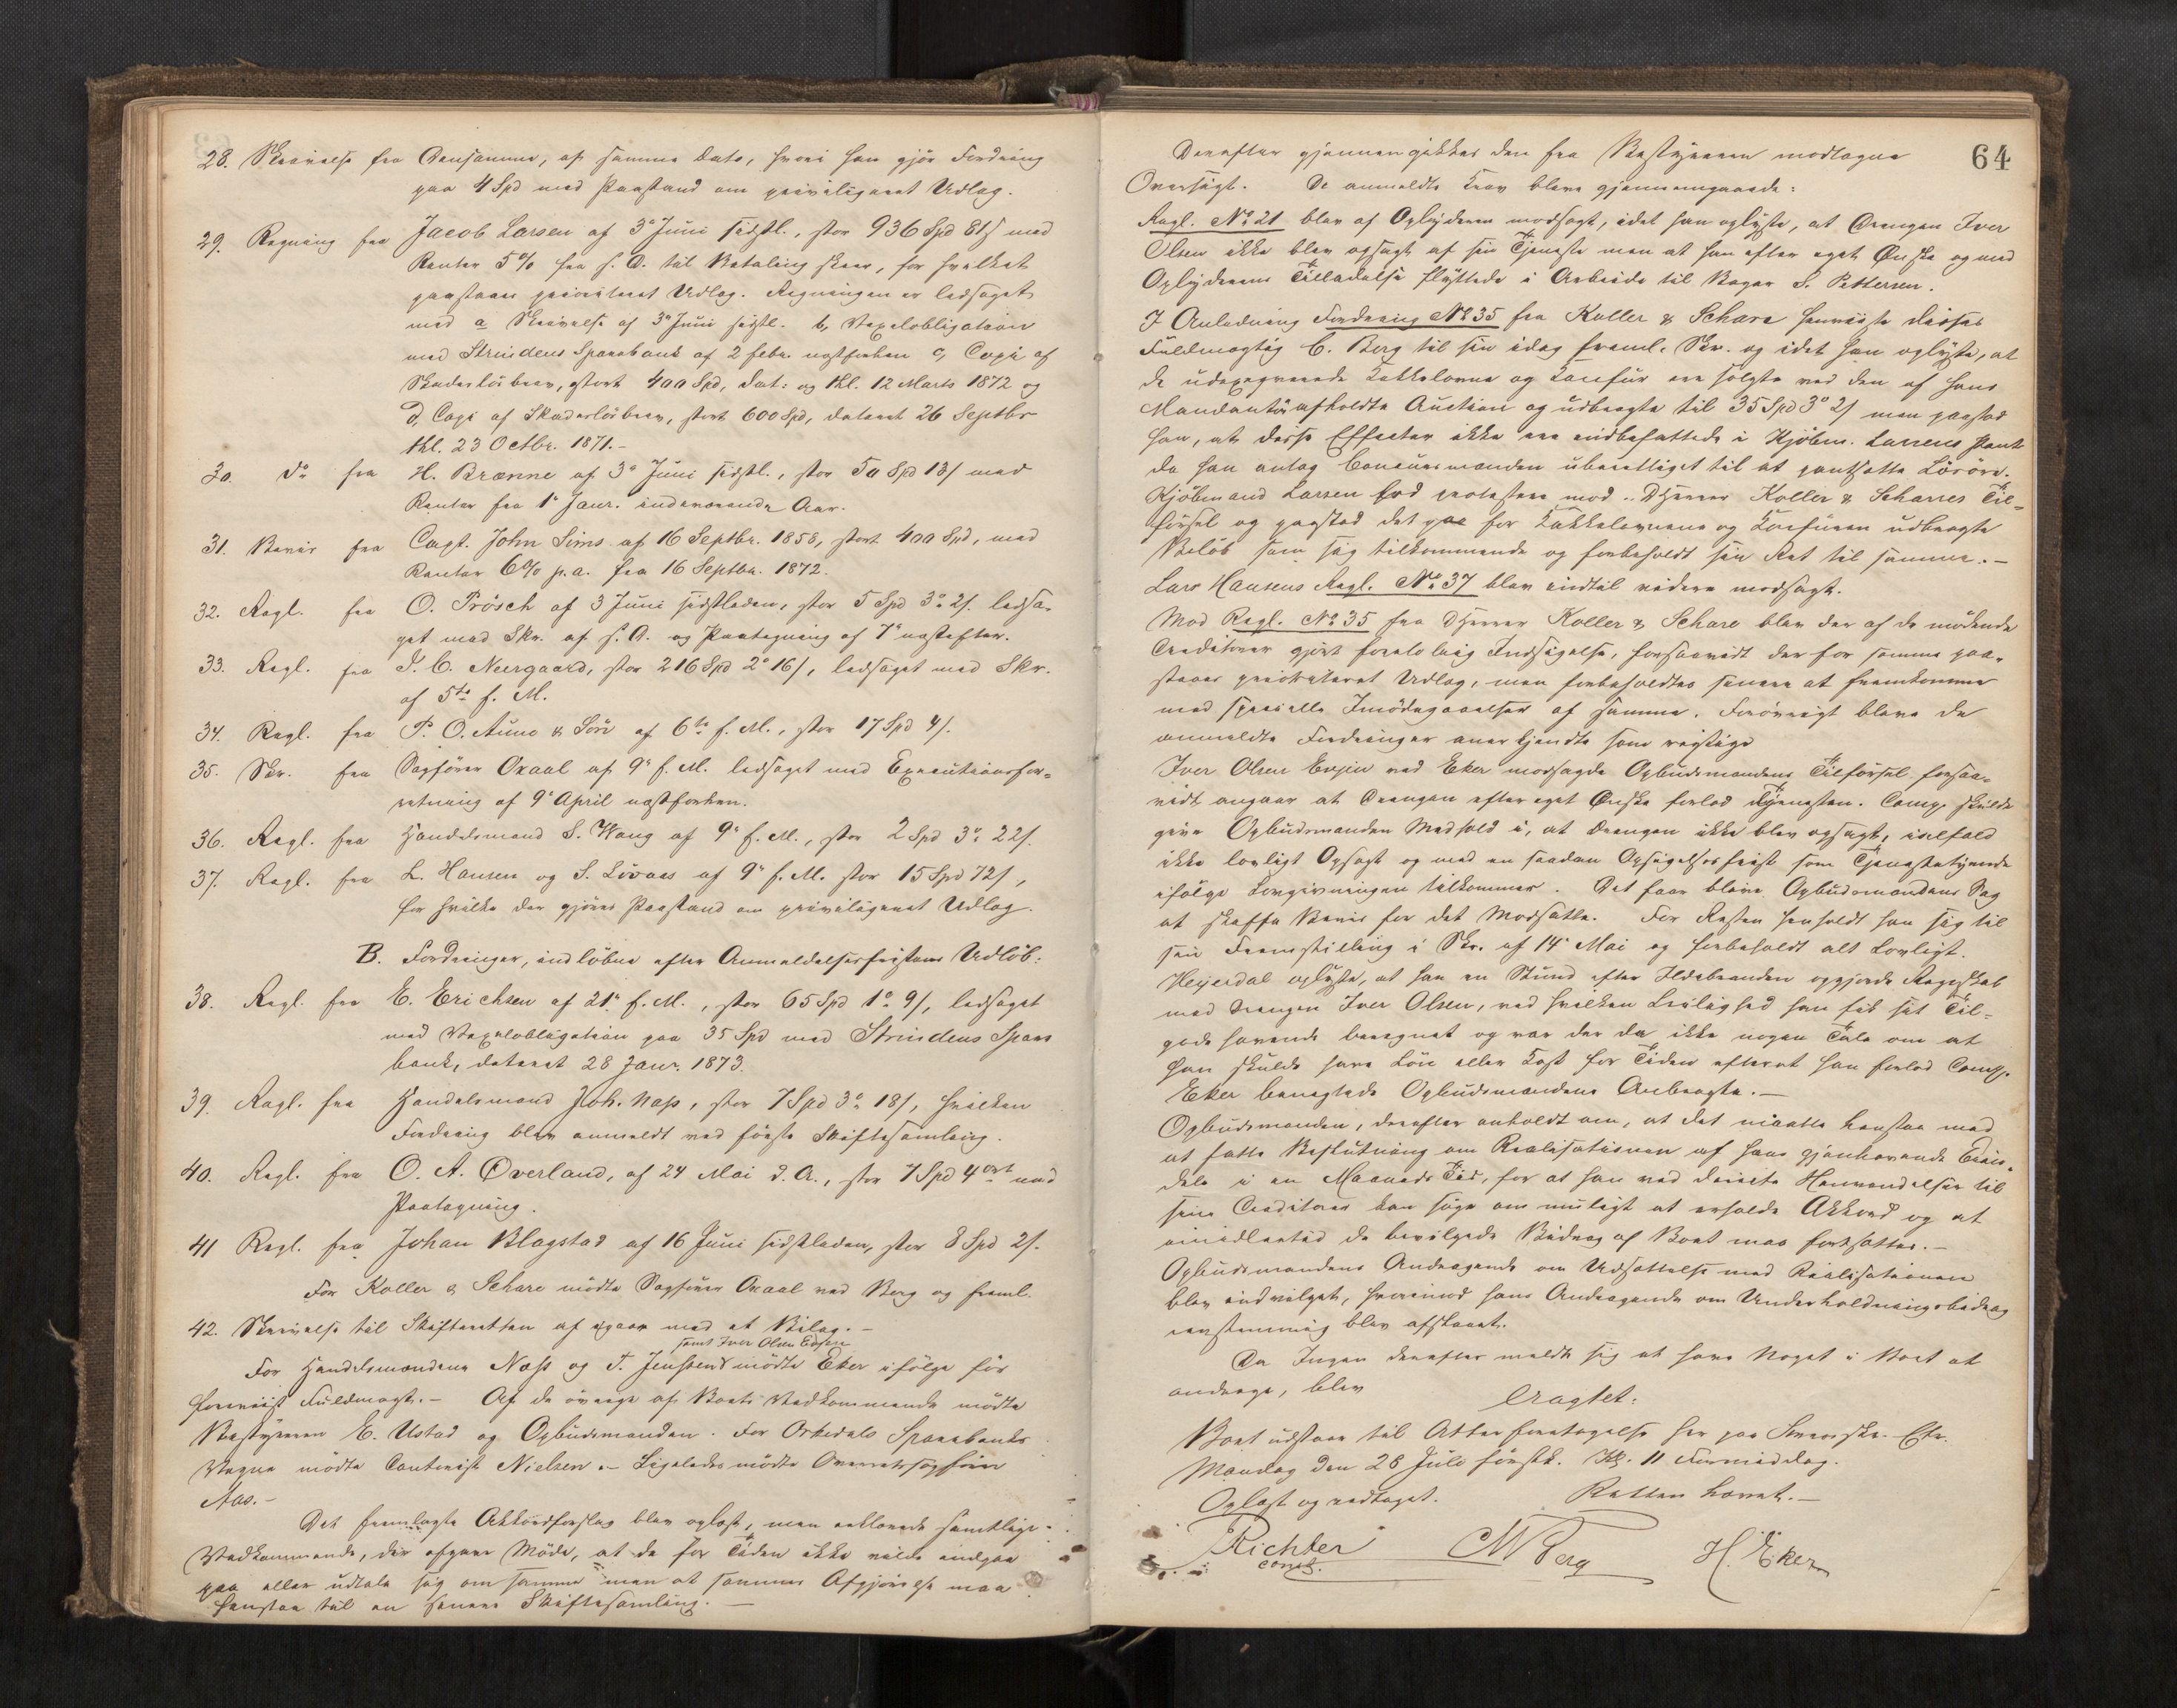 28. Skrivelse fra Densamme, af samme Dato, hvori han gjør Fordring
paa 4 Spd med Paastand om priviligeret Udlæg.
29. Regning fra Jacob Larsen af 3die Juni sidstl., stor 936 Spd 81 s med
Renter 5% fra s. D. til Betaling skeer, for hvilket
paastaaes prioriteret Udlæg. Regningen er ledsaget
med a Skrivelse af 3die Juni sidstl. b, Vexelobligation
med Strindens Sparebank af 2 Febr. næstforhen c, Copi af
Skadesløsbrev, stort 400 Spd, dat: og thl. 12 Marts 1872 og
d, Copi af Skadesløsbrev, stort 600 Spd, dateret 26 Septbr
thl. 23 Octbr. 1871.-
30. do fra H. Brænne af 3die Juni sidstl., stor 50 Spd 13 s med
Renter fra 1ste Janr. indeværende Aar.
31. Bevis fra Capt. John Sims af 16 Septbr. 1858, stort 400 Spd, med
Renter 6% p.a. fra 16 Septbr. 1872.
32. Regl. fra O. Trösch af 3 Juni sidstleden, stor 5 Spd 3o 2 s. ledsa-
get med Skr. af s. D. og Paategning af 7de næstefter.
33. Regl. fra J. C. Neergaard, stor 216 Spd 2o 16 s, ledsaget med Skr.
af 5te s. M.
34. Regl. fra P. O. Aune & Sön af 6te s. M., stor 17 Spd 4 s.
35. Skr. fra Sagfører Oxaal af 9de s. M. ledsaget med Executionsfor-
retning af 9de April næstforhen.
36. Regl. fra Handelsmand S. Wang af 9de s. M., stor 2 Spd 3o 22 s.
37. Regl. fra L. Hansen og S. Lövaas af 9de s. M. stor 15 Spd 72 s,
for hvilke der gjøres Paastand om priviligeret Udlæg.
B. Fordringer, indløbne efter Anmeldelsesfristens Udløb:
38. Regl. fra E. Erichsen af 21de s. M., stor 65 Spd 1o 9 s, ledsaget
med Vexelobligation paa 35 Spd med Strindens Spare
bank, dateret 28 Janr. 1873.
39. Regl. fra Handelsmand Joh. Næss, stor 7 Spd 3o 18 s, hvilken
Fordring blev anmeldt ved første Skiftesamling.
40. Regl. fra O. A. Øverland, af 24 Mai d. A., stor 7 Spd 4 ort med
Paategning.
41 Regl. fra Johan Blagstad af 16 Juni sidstleden, stor 8 Spd 2 s.
For Koller & Schare mødte Sagfører Oxaal ved Berg og freml.
42. Skrivelse til Skifteretten af igaar med et Bilag.-
samt Iver Olsen Evjen
For Handelsmændene Næss og T. Jenssen mødte Eker ifølge før
foreviist Fuldmagt.- Af de øvrige af Boets Vedkommende mødte
Bestyreren E. Ustad og Opbudsmanden. For Orkedals Sparebanks
Vegne mødte Cantorist Nielsen.- Ligeledes mødte Overretssagfører
Aas.-
Det fremlagte Akkordforslag blev oplæst, men erklærede samtlige
Vedkommende, der afgave Møde, at de for Tiden ikke vilde indgaa
paa eller udtale sig om samme men at sammes Afgjørelse maa
henstaa til en senere Skiftesamling.-
64
Derefter gjennemgikkes den fra Bestyreren modtagne
Oversigt. De anmeldte Krav bleve gjennemgaaede:
Regl. No 21 blev af Opbyderen modsagt, idet han oplyste, at Drengen Iver
Olsen ikke blev opsagt af sin Tjeneste men at han efter eget Ønske og med
Opbyderens Tilladelse flyttede i Arbeide til Bager S. Pettersen.
I Anledning Fordring No 35 fra Koller & Schare henviiste disses
Fuldmægtig C. Berg til sin idag freml. Skr. og idet han oplyste, at
de udexeqverede Kakkelovne og Komfur ere solgte ved den af hans
Mandanter afholdte Auction og udbragte til 35 Spd 3o 2 s men paastod
han, at disse Effecter ikke ere indbefattede i Kjøbm. Larsens Pant
da han antog Concursmanden uberettiget til at pantsætte Løsøre.
Kjøbmand Larsen lod protestere mod DHerrer Koller & Schares Til-
førsel og paastod det paa for Kakkelovnene og Komfuren udbragte
Beløb som sig tilkommende og forbeholdt sin Ret til samme.-
Lars Hansens Regl. No 37 blev indtil videre modsagt.
Mod Regl. No 35 fra DHerrer Koller & Schare blev der af de mødende
Creditorer gjort foreløbig Indsigelse, forsaavidt der for samme paa-
staaes prioriteret Udlæg, men forbeholdtes senere at fremkomme
med specielle Imødegaaelser af samme. Forøvrigt bleve de
anmeldte Fordringer anerkjendte som rigtige
Iver Olsen Evjen ved Eker modsagde Opbudsmandens Tilførsel forsaa-
vidt angaar at Drengen efter eget Ønske forlod Tjenesten. Comp. skulde
give Opbudsmanden Medhold i, at Drengen ikke blev opsagt, ialfald
ikke lovligt Opsagt og med en saadan Opsigelsesfrist som Tjenestetyende
ifølge Lovgivningen tilkommer. Det faar blive Opbudsmandens Sag
at skaffe Bevis for det Modsatte. For Resten henholdt han sig til
sin Fremstilling i Skr. af 14de Mai og forbeholdt alt Lovligt.
Heyerdal oplyste, at han en Stund efter Ildebranden opgjorde Regnskab
med Drengen Iver Olsen, ved hvilken Leilighed han fik sit Til-
gode havende beregnet og var der da ikke nogen Tale om at
han skulde have Løn eller Kost for Tiden efterat han forlod Comp.
Eker benegtede Opbudsmandens Anbragte.-
Opbudsmanden, derefter anholdt om, at det maatte henstaa med
at fatte Beslutning om Realisationen af hans gjenhavende Eien-
dele i en Maaneds Tid, for at han ved directe Henvendelser til
sine Creditorer kan søge om muligt at erholde Akkord og at
imidlertid de bevilgede Bidrag af Boet maa fortsættes.-
Opbudsmandens Andragende om Udsættelse med Realisationen
blev indvilget, hvorimod hans Andragende om Underholdningsbidrag
eenstemmig blev afslaaet.
Da Ingen derefter meldte sig at have Noget i Boet at
andrage, blev
Eragtet:
Boet udstaar til Atter foretagelse her paa Skr.
Mandag den 28 Juli førstk. Kl. 11 Formiddag.
Oplæst og vedtaget. Retten hævet.-
Richter CM Berg H. Eker
const.